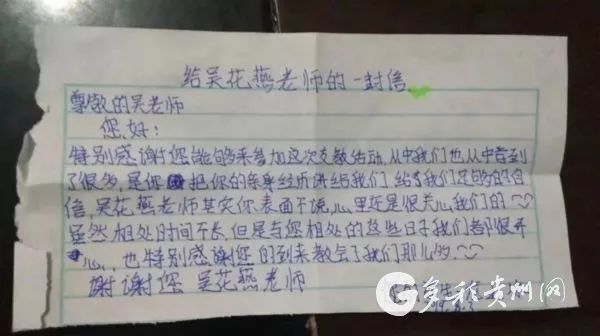 给吴花燕老师的一封信
尊敬的吴老师
您好:
特别感谢您能够来参加这次支教活动,从中我们也从中学到
了很多,是你把你的亲身经历讲给我们,给了我们足够的自
信,吴花燕老师其实你表面不说,心里还是很关心我们的
虽然相处时间不长,但是与您相处的这些日子我们都很开
心,也特别感谢您的到来教会了我们那么多.
谢谢您 吴花燕老师
多彩贵州网